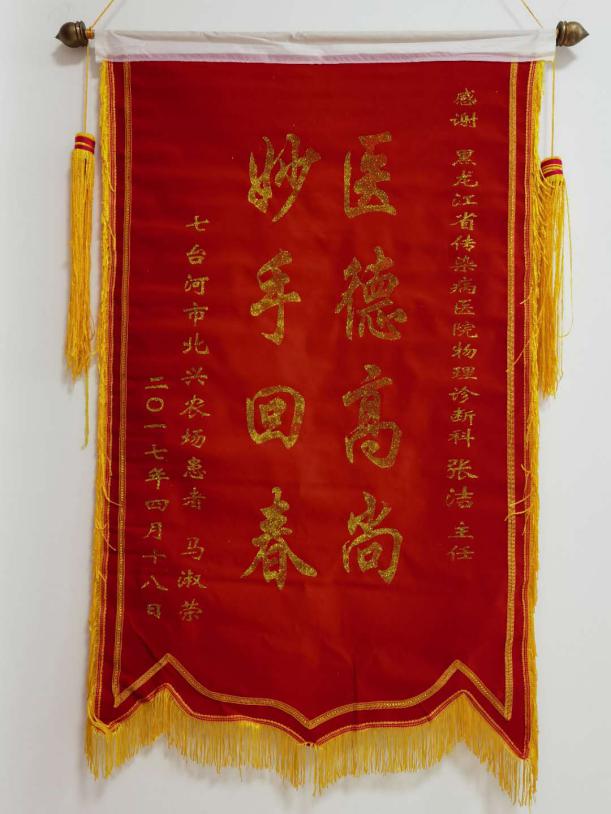 感谢 黑龙江省传染病医院物理诊断科 张洁 主任
医德高尚
妙手回春
七台河市北兴农场患者 马淑荣
二〇一七年四月十八日